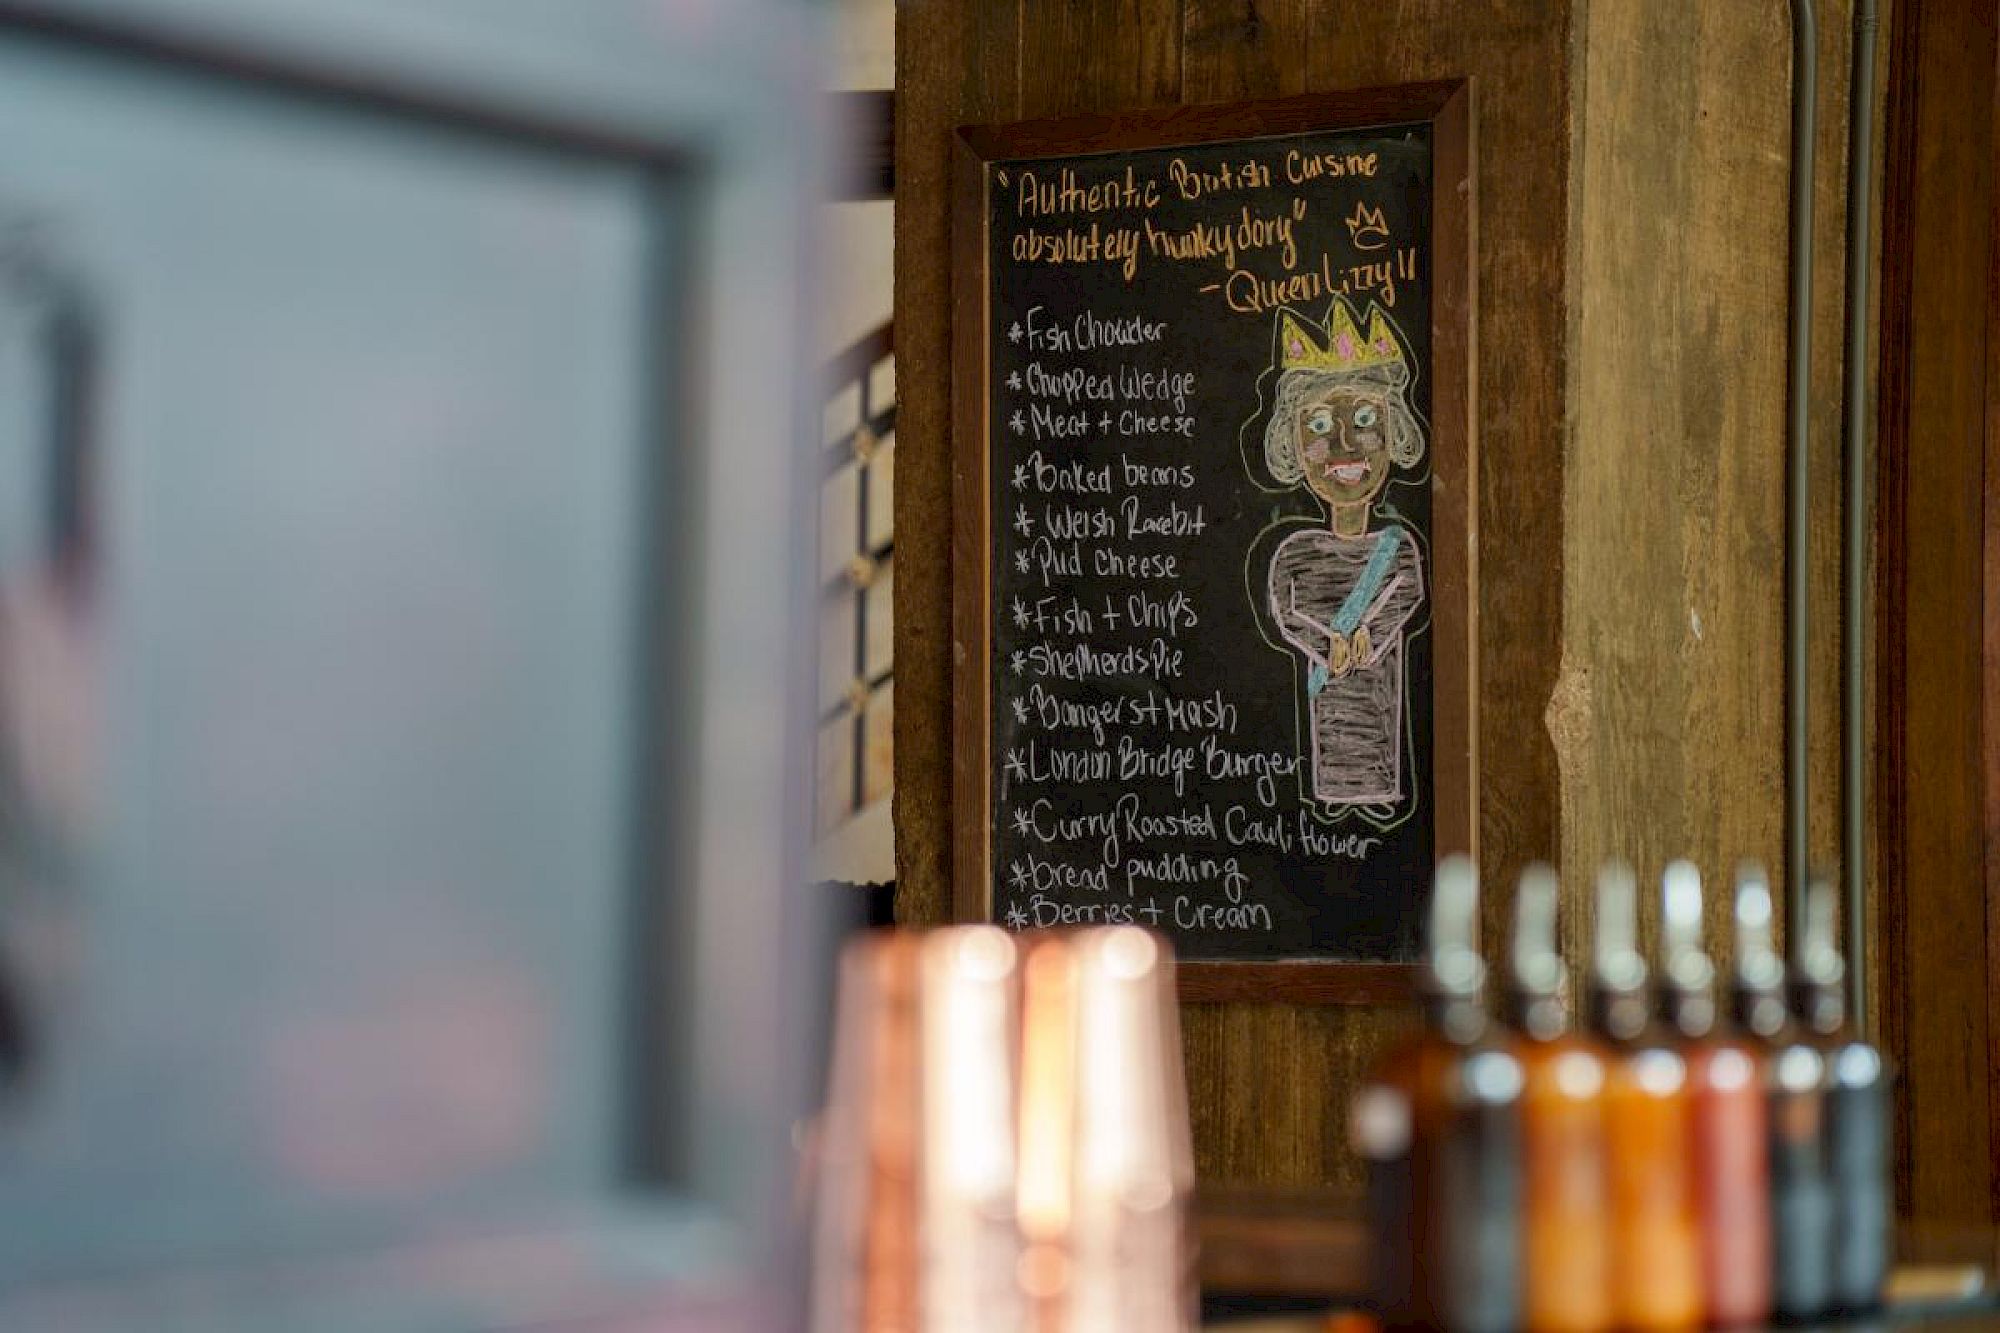 "Authentic British Cuisine
absolutely hunkydory"
- Queen Lizzy II
*Fish Chowder
*Chopped Wedge
*Meat + Cheese
*Baked beans
* Welsh Rarebit
*Pud Cheese
*Fish + Chips
*Shepherds Pie
*Bangers + Mash
*London Bridge Burger
*Curry Roasted Cauliflower
*bread pudding
*Berries + Cream